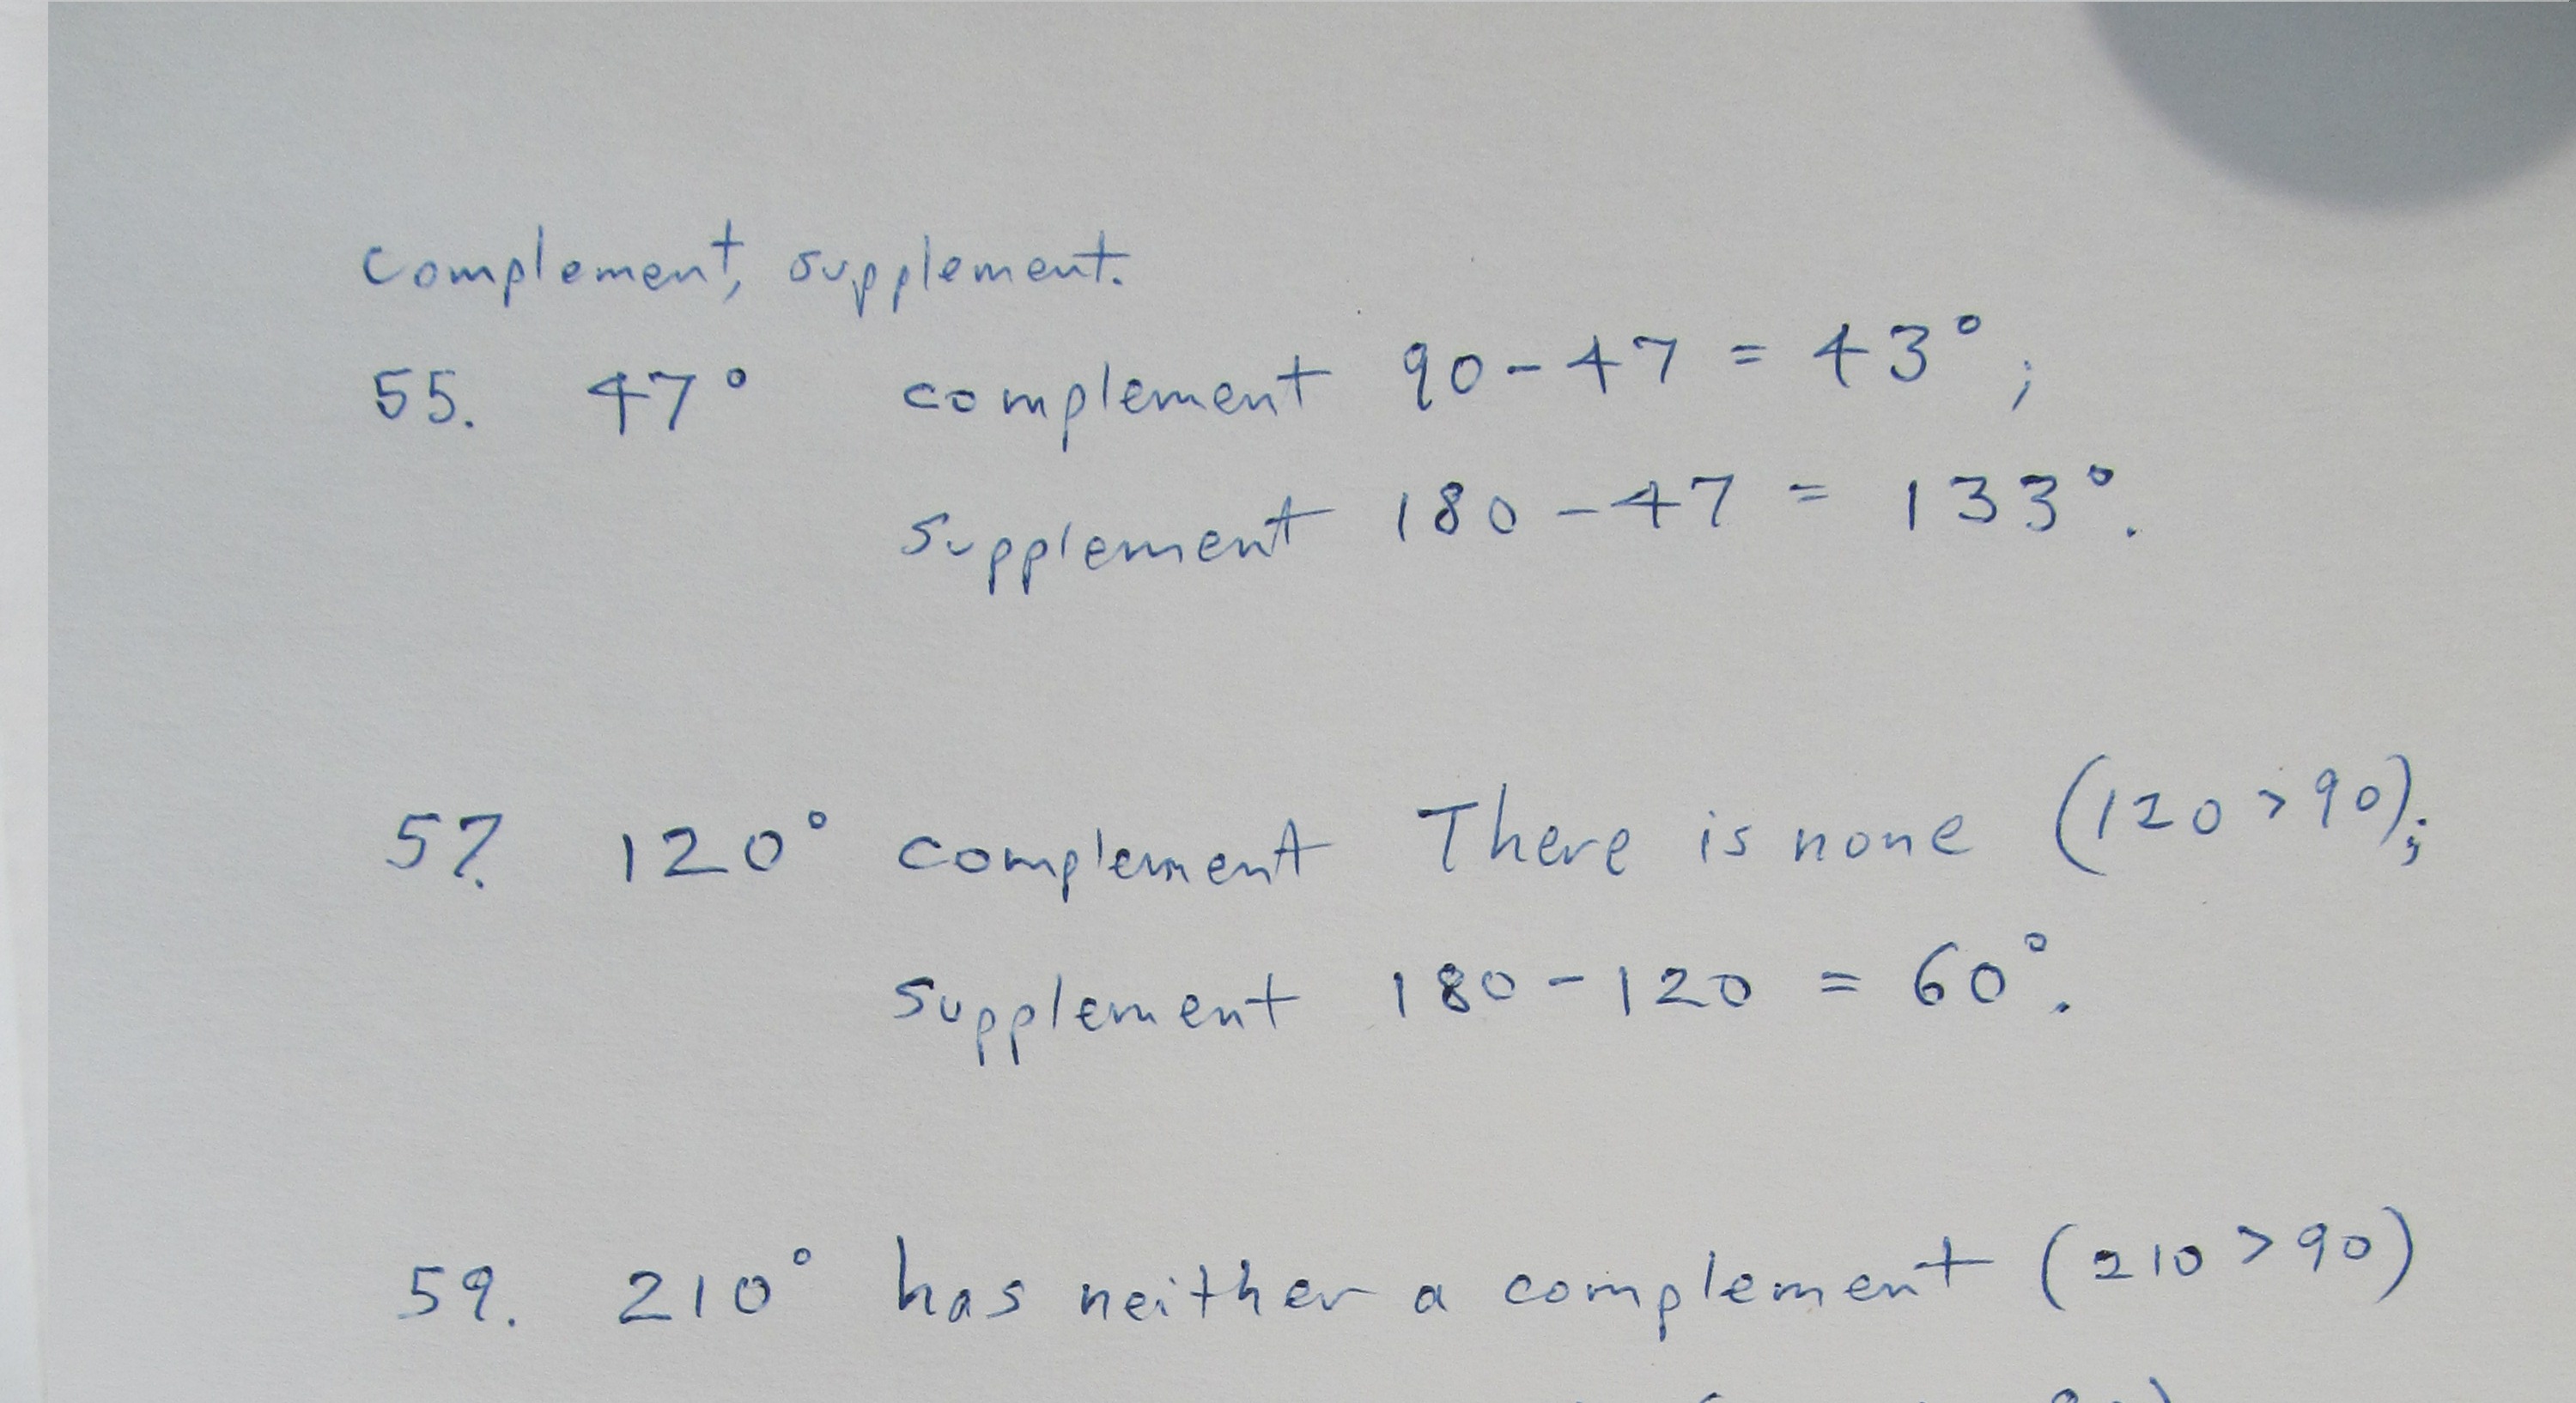 Complement, supplement.
55. 47° complement 90-47 = 43°;
supplement 180-47 = 133°.
57. 120° complement There is none (120>90);
supplement 180-120 = 60°.
59. 210° has neither a complement (210>90)